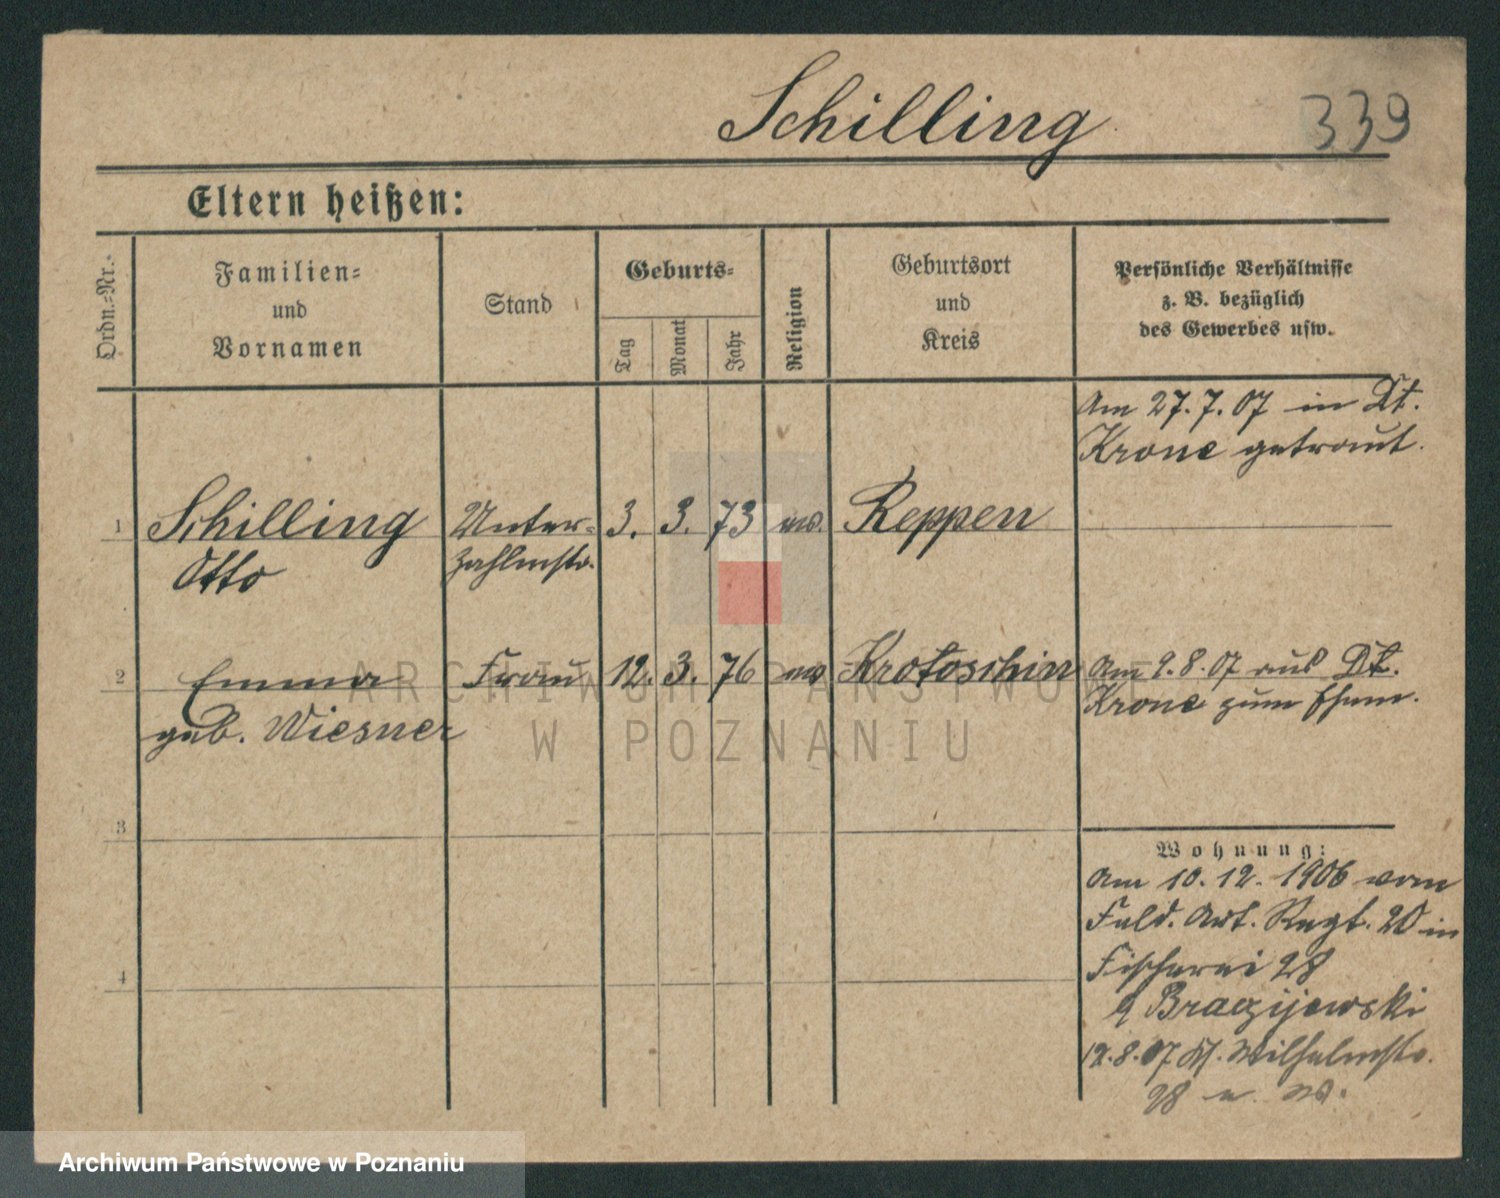 Schilling
339
Eltern heißen:
Ordn.-Nr.
Familien-
und
Vornamen
Stand
Geburts-
Tag
Monat
Jahr
Religion
Geburtsort
und
Kreis
Persönliche Verhältnisse
z. B. bezüglich
des Gewerbes usw.
Am 27. 7. 07 in Dt.
Krone getraut.
1 Schilling Unter- 3. 3. 73 ev. Reppen
Otto zahlmstr.
2 Emma Frau 12. 3. 76 ev Krotoschin Am 9. 8. 07 aus Dt.
geb. Wiesner Krone zum Ehem.
3
Wohnung:
Am 10. 12. 1906 vom
Feld. Art. Regt. 20 in
Fischerei 28
4
b/ Braczijewski
12. 8. 07 Kl. Wilhelmstr.
28
ARCHIWUM PAŃSTWOWE
W POZNANIU
Archiwum Państwowe w Poznaniu